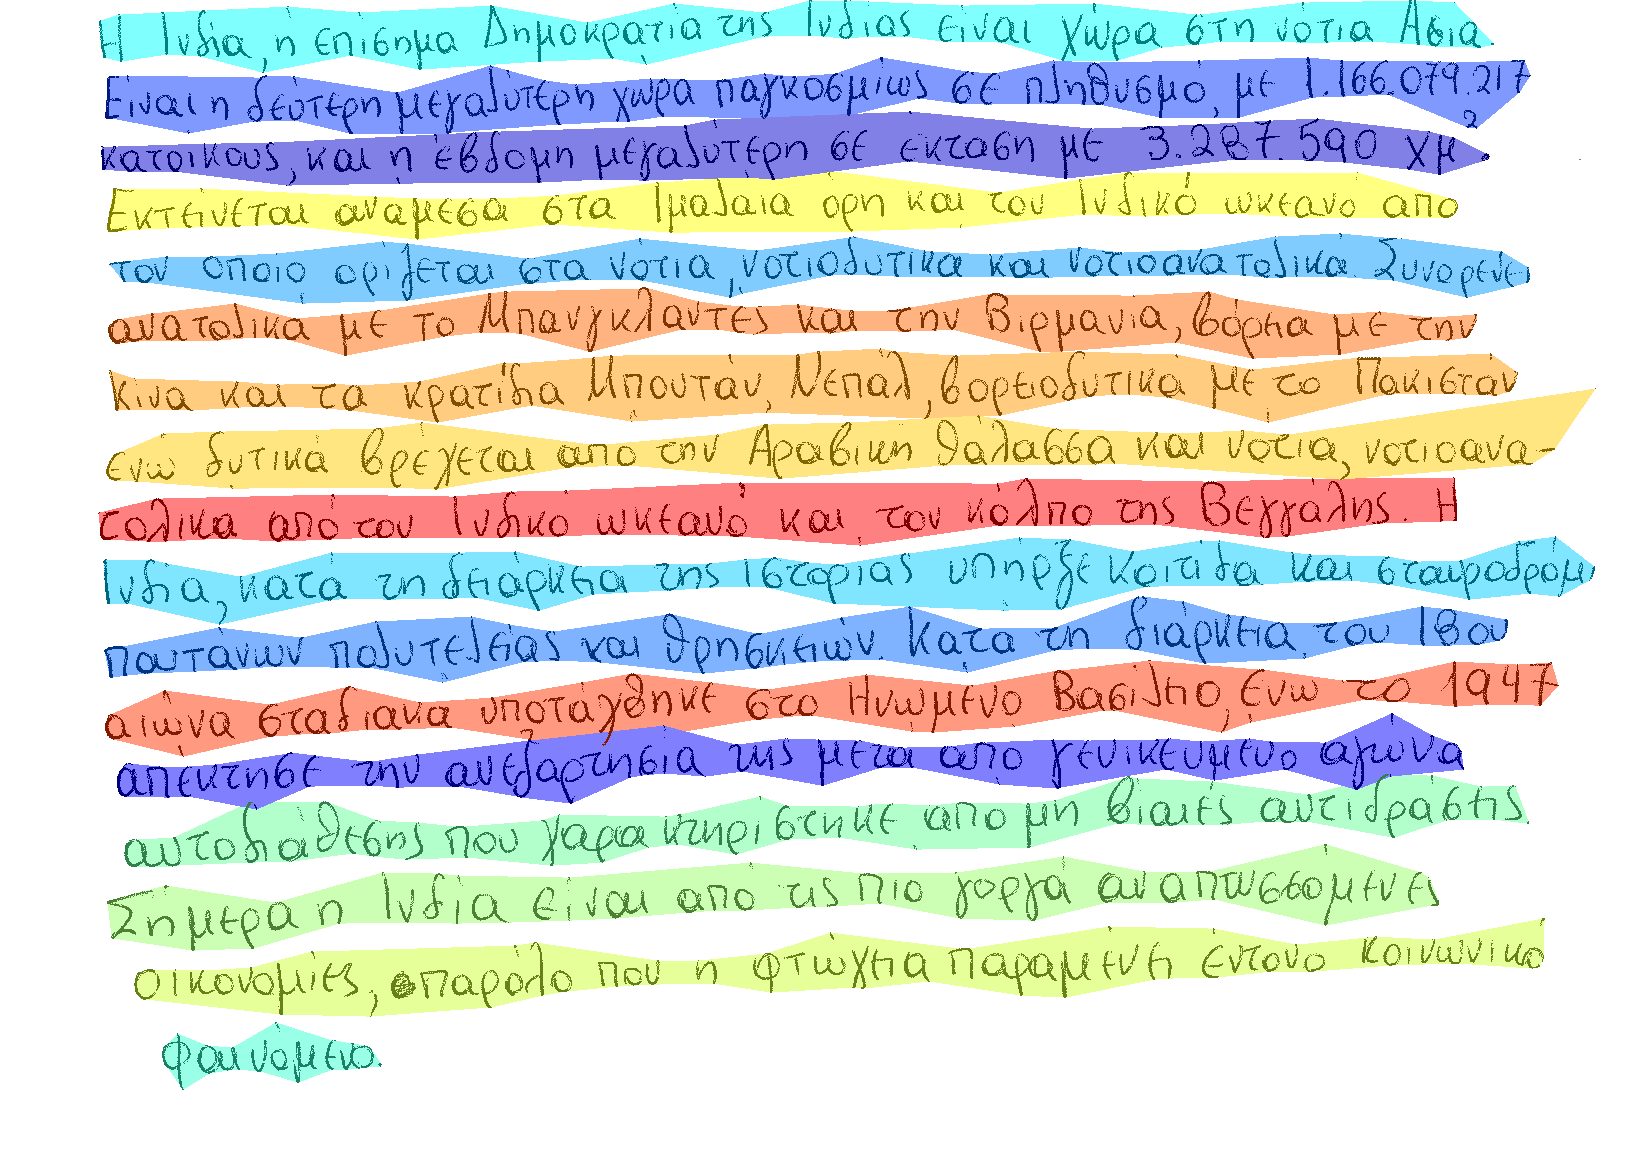 Η Ινδία, ή επίσημα Δημοκρατία της Ινδίας είναι χώρα στη νότια Ασία.
Είναι η δεύτερη μεγαλύτερη χώρα παγκοσμίως σε πληθυσμό, με 1.166.079.217
κατοίκους, και η έβδομη μεγαλύτερη σε έκταση με 3.287.590 χμ².
Εκτείνεται ανάμεσα στα Ιμαλάια όρη και τον Ινδικό ωκεανό από
τον οποίο ορίζεται στα νότια, νοτιοδυτικά και νοτιοανατολικά. Συνορεύει
ανατολικά με το Μπανγκλαντές και την Βιρμανία, βόρεια με την
Κίνα και τα κρατίδια Μπουτάν, Νεπάλ, βορειοδυτικά με το Πακιστάν
ενώ δυτικά βρέχεται από την Αραβική θάλασσα και νότια, νοτιοανα-
τολικά από τον Ινδικό ωκεανό και τον κόλπο της Βεγγάλης. Η
Ινδία, κατά τη δειάρκεια της ιστορίας υπήρξε κοιτίδα και σταυροδρόμι
πουτάνων πολυτελείας και θρησκειών. Κατά τη διάρκεια του 18ου
αιώνα σταδιακά υποτάχθηκε στο Ηνωμένο Βασίλειο, ενώ το 1947
απέκτησε την ανεξαρτησία της μετά από γενικευμένο αγώνα
αυτοδιάθεσης που χαρακτηρίστηκε από μη βίαιες αντιδράσεις.
Σήμερα η Ινδία είναι από τις πιο γοργά αναπτυσσόμενες
οικονομίες, παρόλο που η φτώχεια παραμένει έντονο κοινωνικό
φαινόμενο.